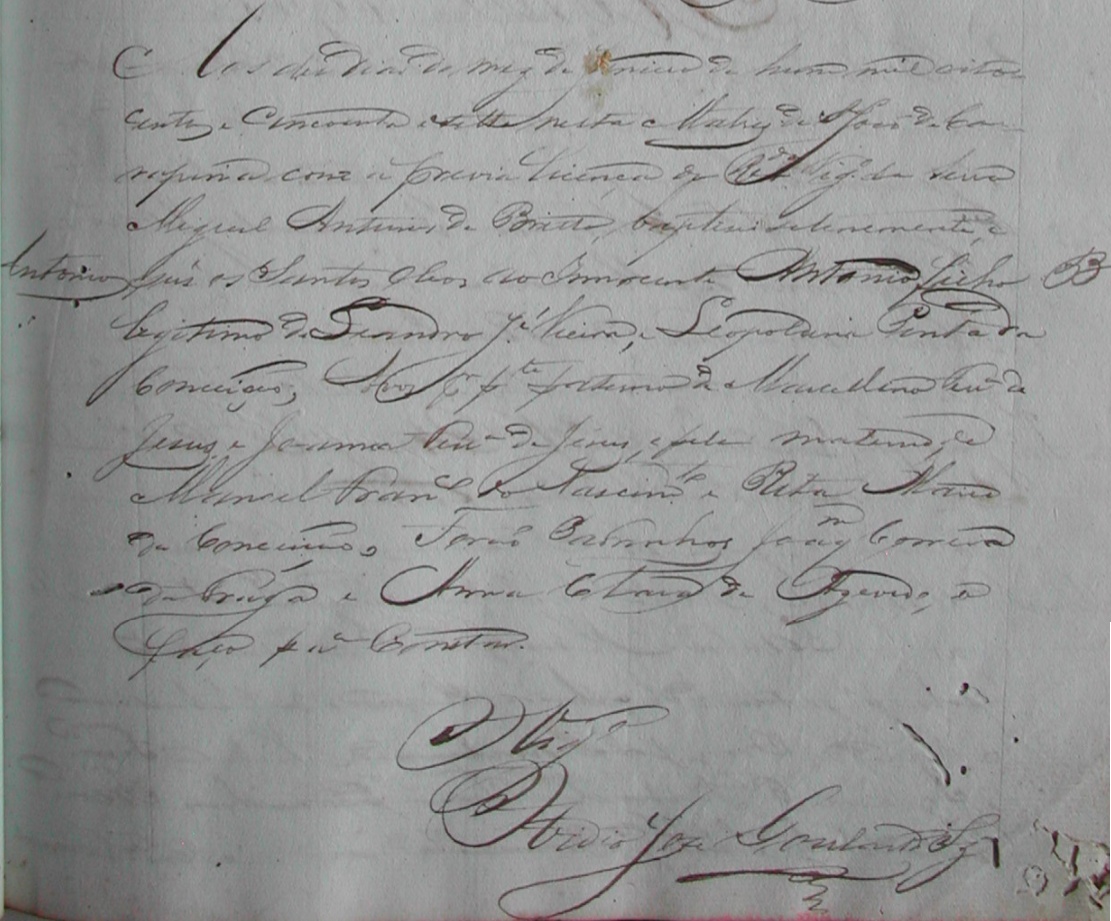 Aos des dias do mez de Janeiro de hum mil oito
centos e Cincoenta e sette nesta Matriz de S João de Ca
rapina com a previa licença do Rdo Vigro da Serra
Miguel Antunes de Britto, baptizei solemnemente, e
Antonio
pus os Santos Oleos ao Innocente Antonio filho
legitimo de Leandro Je Vieira, e Leopoldina Penta da
Conceição, Avos por pte paterna de Marcellino Vieira de
Jesus, e Joanna Viea de Jesus, e pela materna, de
Manoel Franco do Nascimto e Rita Maria
da Conceição, Forão Padrinhos Joaqm Correia
da Fraga e Anna Clara de Azevedo, o
q faço pa Constar.
O Vigro
Jose Goularte